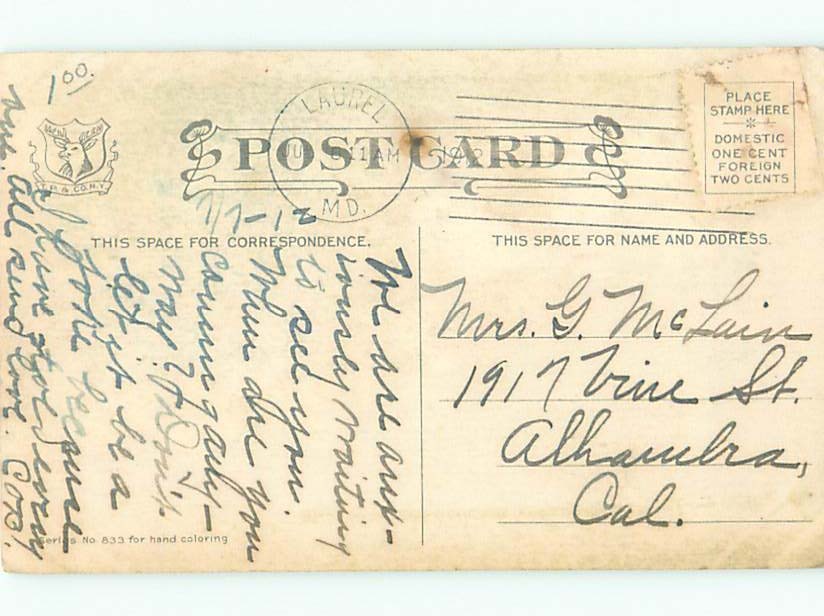 1 00.
LAUREL
11 AM
191
MD.
POST CARD
PLACE
STAMP HERE
DOMESTIC
ONE CENT
FOREIGN
TWO CENTS
7/7-12
THIS SPACE FOR CORRESPONDENCE.
THIS SPACE FOR NAME AND ADDRESS.
We are anx-
iously waiting
to see you.
When are you
coming any-
way? Don't
let it be a
joke
I have told every
one. All send love.
Mrs. G. McLain
1917 Vine St.
Alhambra,
Cal.
Series No. 833 for hand coloring